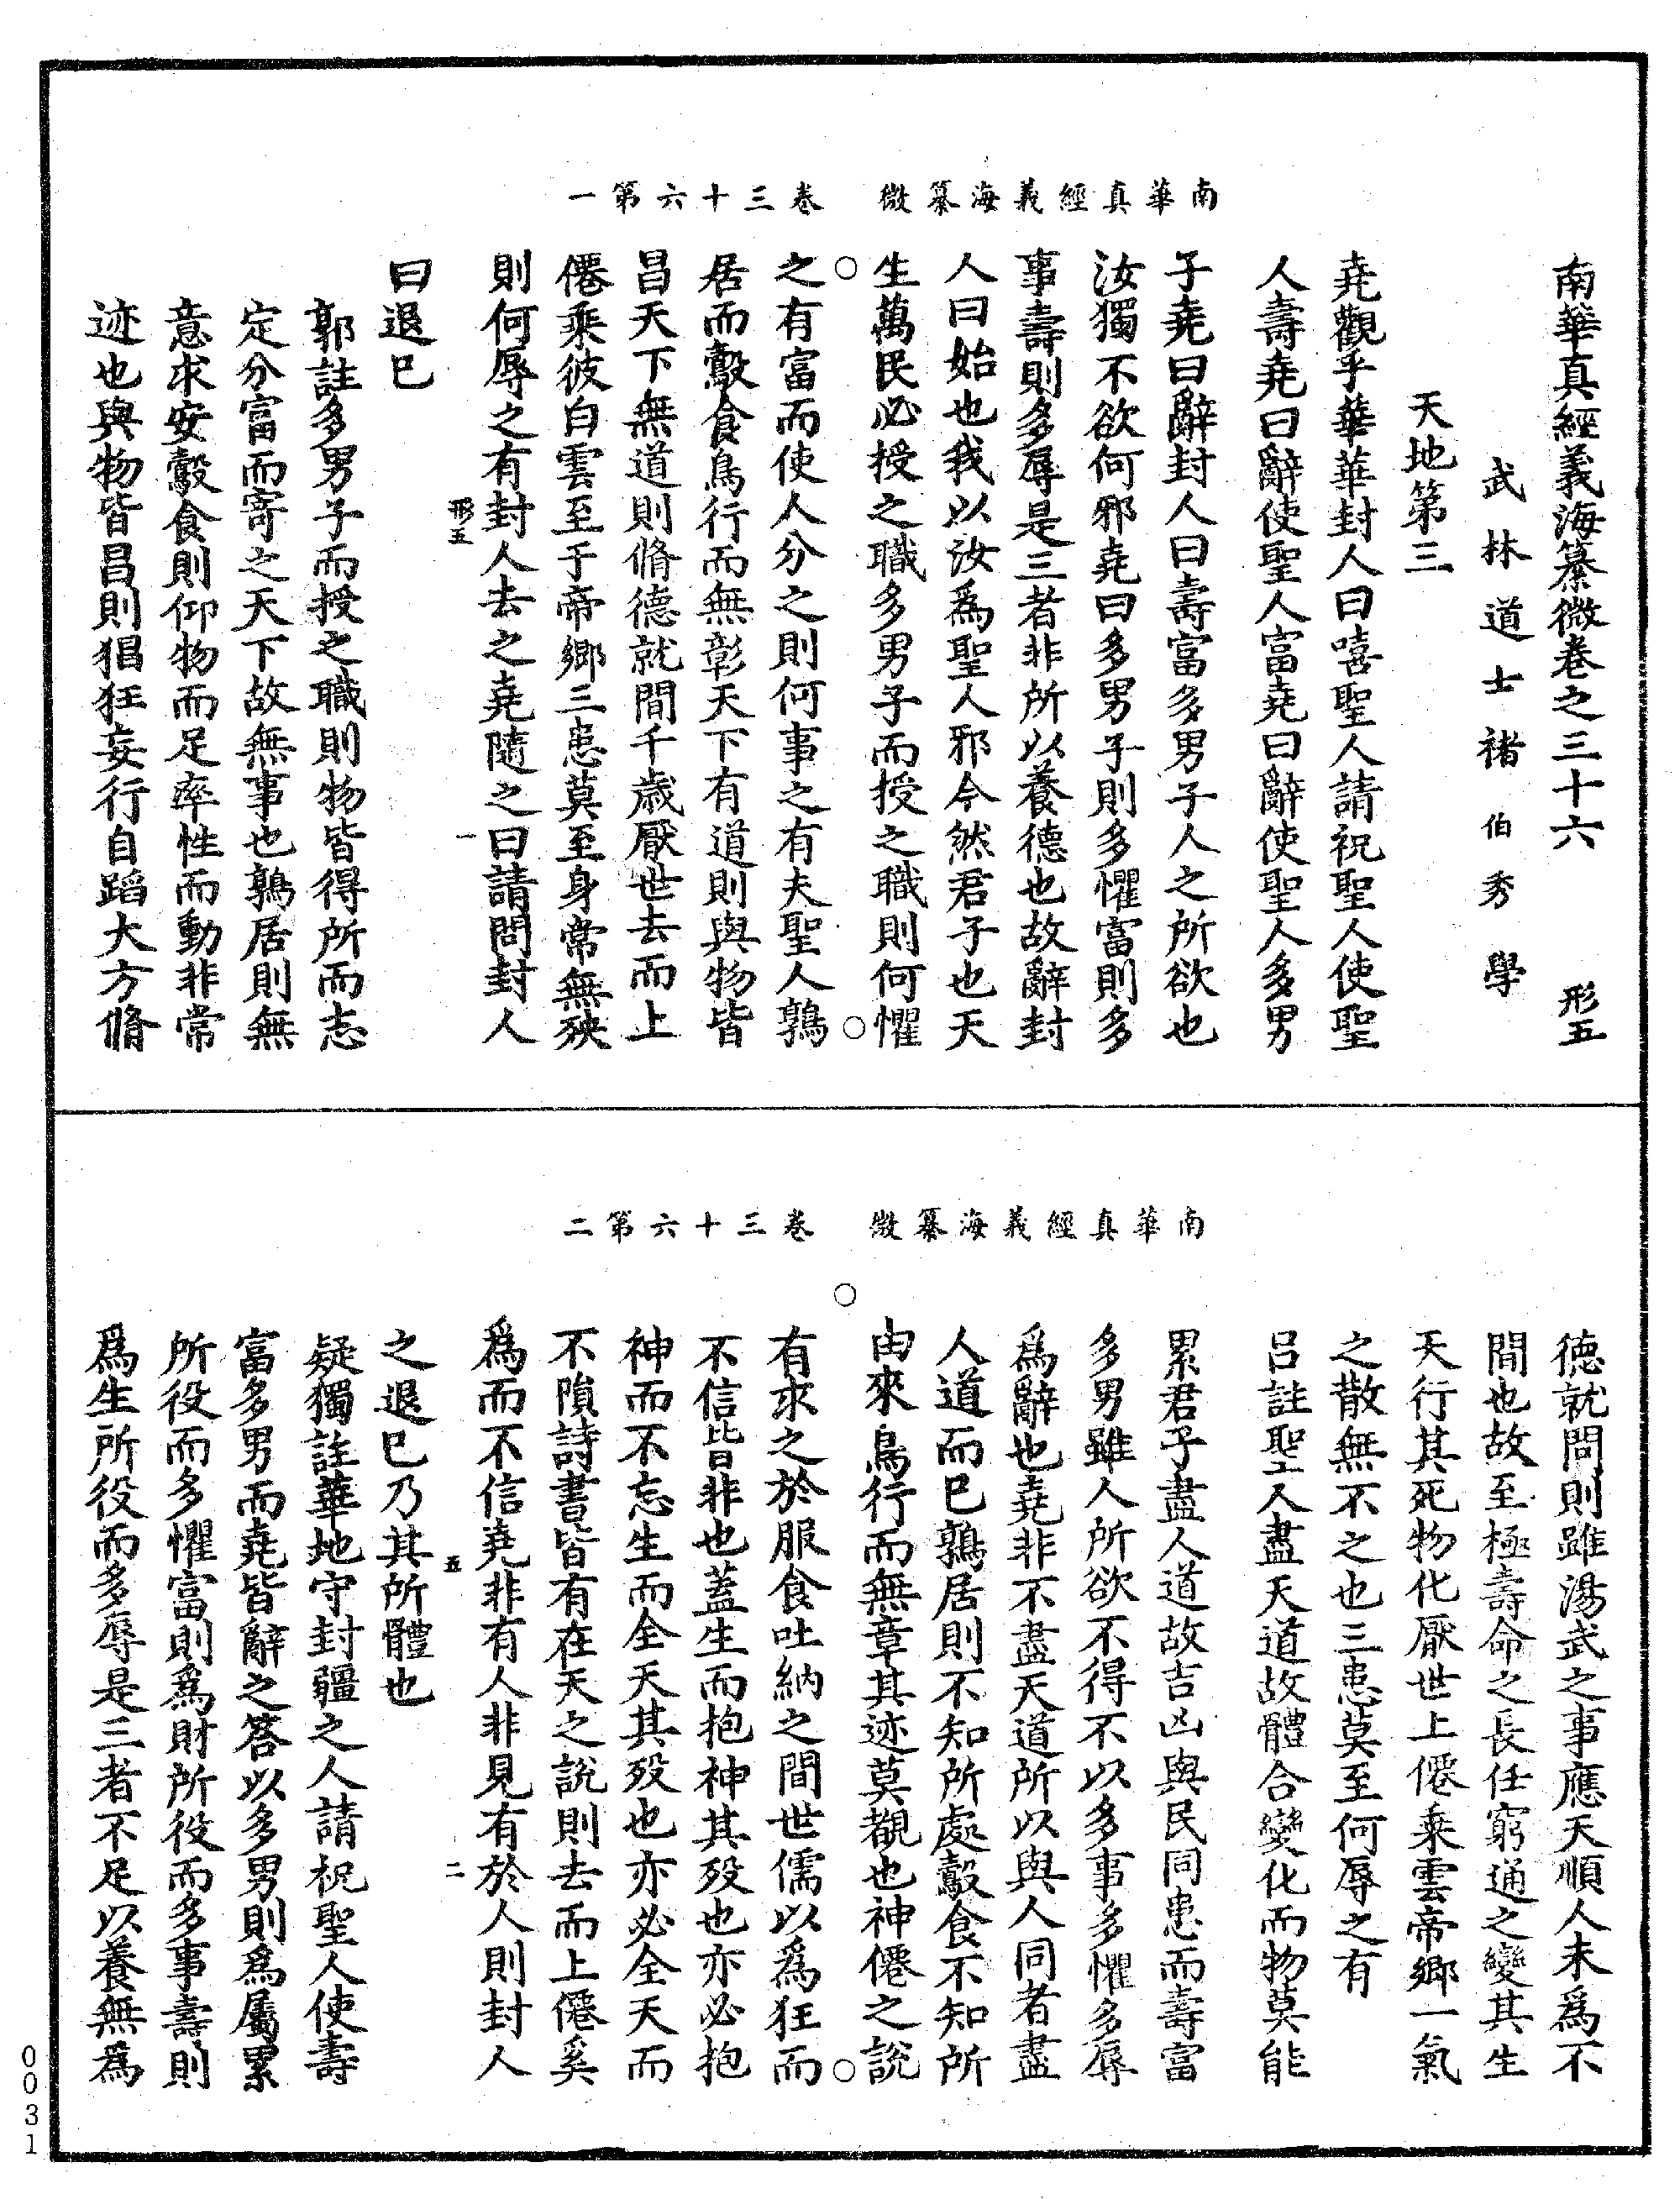 南華真經義海纂微　卷三十六第一
南華真經義海纂微卷之三十六　形五
武林道士褚伯秀學
天地第三
堯觀乎華華封人曰嘻聖人請祝聖人使聖
人壽堯曰辭使聖人富堯曰辭使聖人多男
子堯曰辭封人曰壽富多男子人之所欲也
汝獨不欲何邪堯曰多男子則多懼富則多
事壽則多辱是三者非所以養德也故辭封
人曰始也我以汝爲聖人邪今然君子也天
生萬民必授之職多男子而授之職則何懼
之有富而使人分之則何事之有夫聖人鶉
居而鷇食鳥行而無彰天下有道則與物皆
昌天下無道則脩德就閒千歲厭世去而上
僊乘彼白雲至于帝鄉三患莫至身常無殃
則何辱之有封人去之堯隨之曰請問封人
形五　一
曰退已
郭註多男子而授之職則物皆得所而志
定分富而寄之天下故無事也鶉居則無
意求安鷇食則仰物而足率性而動非常
迹也與物皆昌則猖狂妄行自蹈大方脩
南華真經義海纂微　卷三十六第二
徳就問則雖湯武之事應天順人未爲不
間也故至極壽命之長任窮通之變其生
天行其死物化厭世上僊乘雲帝鄉一氣
之散無不之也三患莫至何辱之有
呂註聖人盡天道故體合變化而物莫能
累君子盡人道故吉凶與民同患而壽富
多男雖人所欲不得不以多事多懼多辱
爲辭也堯非不盡天道所以與人同者盡
人道而已鶉居則不知所處鷇食不知所
由來鳥行而無章其迹莫覩也神僊之說
有求之於服食吐納之間世儒以爲狂而
不信皆非也蓋生而抱神其歿也亦必抱
神而不忘生而全天其歿也亦必全天而
不隕詩書皆有在天之說則去而上僊奚
爲而不信堯非有人非見有於人則封人
五　二
之退已乃其所體也
疑獨註華地守封疆之人請祝聖人使壽
富多男而堯皆辭之答以多男則爲屬累
所役而多懼富則爲財所役而多事壽則
爲生所役而多辱是三者不足以養無爲
0031